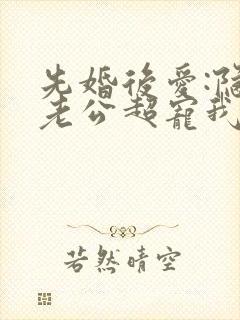 先婚後愛:
老公超寵我
若然晴空